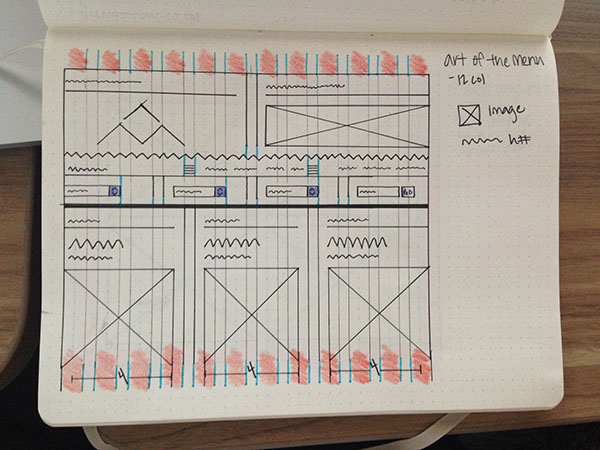 art of the menu
-12 col
image
h#
GO
4
4
4